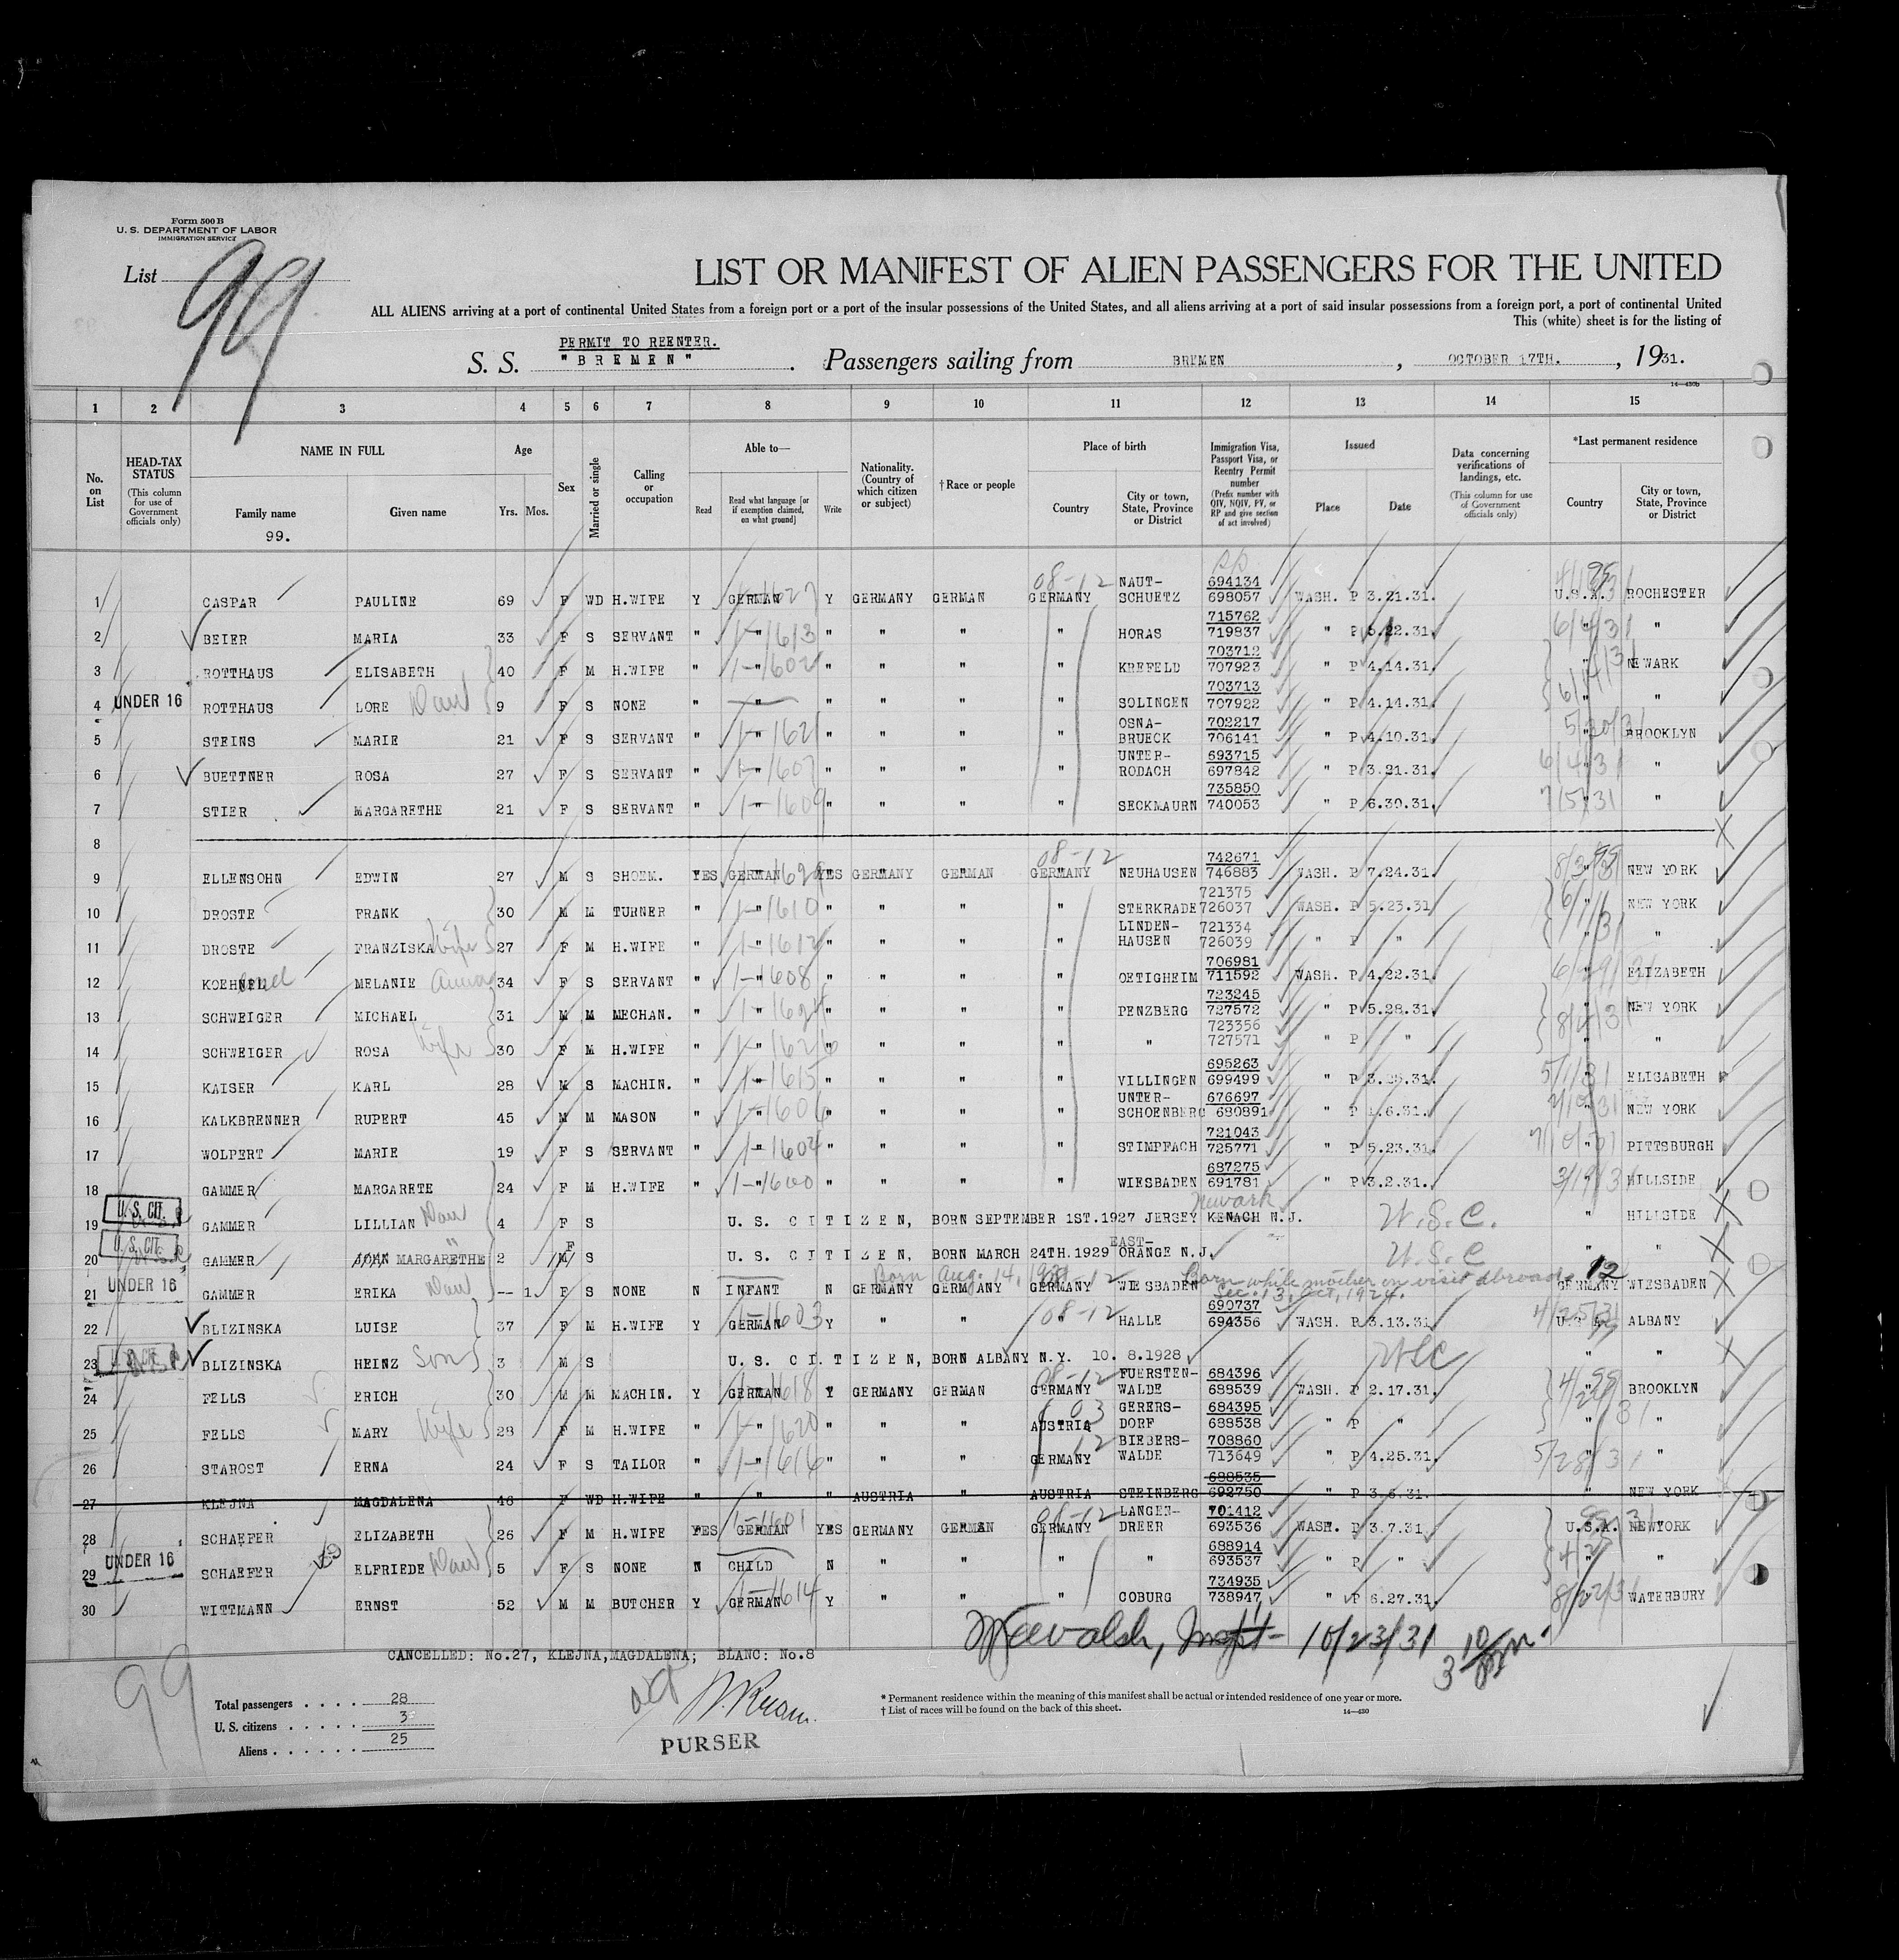 Form 500 B
U. S. DEPARTMENT OF LABOR
IMMIGRATION SERVICE
List 99
LIST OR MANIFEST OF ALIEN PASSENGERS FOR THE UNITED
ALL ALIENS arriving at a port of continental United States from a foreign port or a port of the insular possessions of the United States, and all aliens arriving at a port of said insular possessions from a foreign port, a port of continental United
This (white) sheet is for the listing of
PERMIT TO REENTER.
S. S. "BREMEN" . Passengers sailing from BREMEN , OCTOBER 17TH. , 1931.
14—430b
1 2 3 4 5 6 7 8 9 10 11 12 13 14 15
No. on List
HEAD-TAX STATUS (This column for use of Government officials only)
NAME IN FULL
Family name 99.
Given name
Age Yrs. Mos.
Sex
Married or single
Calling or occupation
Able to—
Read
Read what language [or if exemption claimed, on what ground]
Write
Nationality. (Country of which citizen or subject)
†Race or people
Place of birth
Country
City or town, State, Province or District
Immigration Visa, Passport Visa, or Reentry Permit number (Prefix number with QIV, NQIV, PV, or RP and give section of act involved)
Issued
Place
Date
Data concerning verifications of landings, etc. (This column for use of Government officials only)
*Last permanent residence
Country
City or town, State, Province or District
1 CASPAR PAULINE 69 F WD H.WIFE Y GERMAN Y GERMANY GERMAN 08-12 GERMANY NAUT-SCHUETZ 694134 698057 WASH. P 3.21.31. U.S.A. ROCHESTER
2 BEIER MARIA 33 F S SERVANT " 1-1613 " " " " " HORAS 715762 719837 " P 5.22.31. 6/4/31 " "
3 ROTTHAUS ELISABETH 40 F M H.WIFE " " " " " " KREFELD 703712 707923 " P 4.14.31. " NEWARK
4 UNDER 16 ROTTHAUS LORE Dau 9 F S NONE " " " " " " SOLINGEN 703713 707922 " P 4.14.31. " "
5 STEINS MARIE 21 F S SERVANT " 1-1621 " " " " " OSNA-BRUECK 702217 706141 " P 4.10.31. 5/20/31 " BROOKLYN
6 BUETTNER ROSA 27 F S SERVANT " 1-1607 " " " " " UNTER-RODACH 693715 697842 " P 3.21.31. 6/4/31 " "
7 STIER MARGARETHE 21 F S SERVANT " 1-1609 " " " " " SECKMAURN 735850 740053 " P 6.30.31. 7/5/31 " "
8
9 ELLENSOHN EDWIN 27 M S SHOEM. YES GERMAN YES GERMANY GERMAN 08-12 GERMANY NEUHAUSEN 742671 746883 WASH. P 7.24.31. 8/3/31 " NEW YORK
10 DROSTE FRANK 30 M M TURNER " 1-1610 " " " " " STERKRADE 721375 726037 WASH. P 5.23.31 " NEW YORK
11 DROSTE FRANZISKA Wife 27 F M H.WIFE " 1-1612 " " " " " LINDEN-HAUSEN 721334 726039 " P " " "
12 KOEHNEL MELANIE 34 F S SERVANT " 1-1608 " " " " " OETIGHEIM 706981 711592 WASH. P 4.22.31. " ELIZABETH
13 SCHWEIGER MICHAEL 31 M M MECHAN. " " " " " " PENZBERG 723245 727572 " P 5.28.31. " NEW YORK
14 SCHWEIGER ROSA Wife 30 F M H.WIFE " " " " " " " 723356 727571 " P " " "
15 KAISER KARL 28 M S MACHIN. " 1-1615 " " " " " VILLINGEN 695263 699499 " P 3.25.31. " ELISABETH
16 KALKBRENNER RUPERT 45 M M MASON " " " " " " UNTER-SCHOENBERG 676697 680891 " P 1.6.31. " NEW YORK
17 WOLPERT MARIE 19 F S SERVANT " 1-1604 " " " " " STIMPFACH 721043 725771 " P 5.23.31. " PITTSBURGH
18 GAMMER MARGARETE 24 F M H.WIFE " 1-1600 " " " " " WIESBADEN 687275 691781 " P 3.2.31. 3/19/31 " HILLSIDE
19 U. S. CIT. GAMMER LILLIAN Dau 4 F S U. S. CITIZEN, BORN SEPTEMBER 1ST.1927 JERSEY KENACH N.J. Newark U.S.C. " HILLSIDE
20 U. S. CIT. GAMMER JOHN MARGARETHE " 2 M F S U. S. CITIZEN, BORN MARCH 24TH.1929 EAST-ORANGE N.J. U.S.C " "
21 UNDER 16 GAMMER ERIKA Dau -- 1 F S NONE N INFANT N GERMANY GERMANY 08-12 GERMANY WIESBADEN Born while mother on visit abroad. Sec. 13, Act, 1924. 12 GERMANY WIESBADEN
22 BLIZINSKA LUISE 37 F M H.WIFE Y GERMAN 1-1603 Y " " 08-12 " HALLE 690737 694356 WASH. P 3.13.31 4/25/31 U.S.A. ALBANY
23 BLIZINSKA HEINZ Son 3 M S U. S. CITIZEN, BORN ALBANY N.Y. 10. 8.1928 USC " "
24 FELLS ERICH 30 M M MACHIN. Y GERMAN 1-1618 Y GERMANY GERMAN 08-12 GERMANY FUERSTEN-WALDE 684396 688539 WASH. P 2.17.31. " BROOKLYN
25 FELLS MARY Wife 28 F M H.WIFE " 1-1620 " " " " 03 AUSTRIA GERERS-DORF 684395 688538 " P " " "
26 STAROST ERNA 24 F S TAILOR " 1-1616 " " " " 12 GERMANY BIEBERS-WALDE 708860 713649 " P 4.25.31. 5/28/31 " "
27 KLEJNA MAGDALENA 46 F WD H.WIFE " " " AUSTRIA " AUSTRIA STEINBERG 688535 692750 " P 3.6.31. " NEW YORK
28 SCHAEFER ELIZABETH 26 F M H.WIFE YES GERMAN 1-1601 YES GERMANY GERMAN 08-12 GERMANY LANGEN-DREER 701412 693536 WASH. P 3.7.31. U.S.A. NEWYORK
29 UNDER 16 SCHAEFER ELFRIEDE Dau 5 F S NONE N CHILD N " " " " 688914 693537 " P " " "
30 WITTMANN ERNST 52 M M BUTCHER Y GERMAN 1-1614 Y " " " COBURG 734935 738947 " P 6.27.31. 8/22/31 " WATERBURY
10/23/31
CANCELLED: No.27, KLEJNA,MAGDALENA; BLANC: No.8
99
Total passengers . . . . 28
U. S. citizens . . . . . 3
Aliens . . . . . . 25
PURSER
* Permanent residence within the meaning of this manifest shall be actual or intended residence of one year or more.
† List of races will be found on the back of this sheet.
14—430